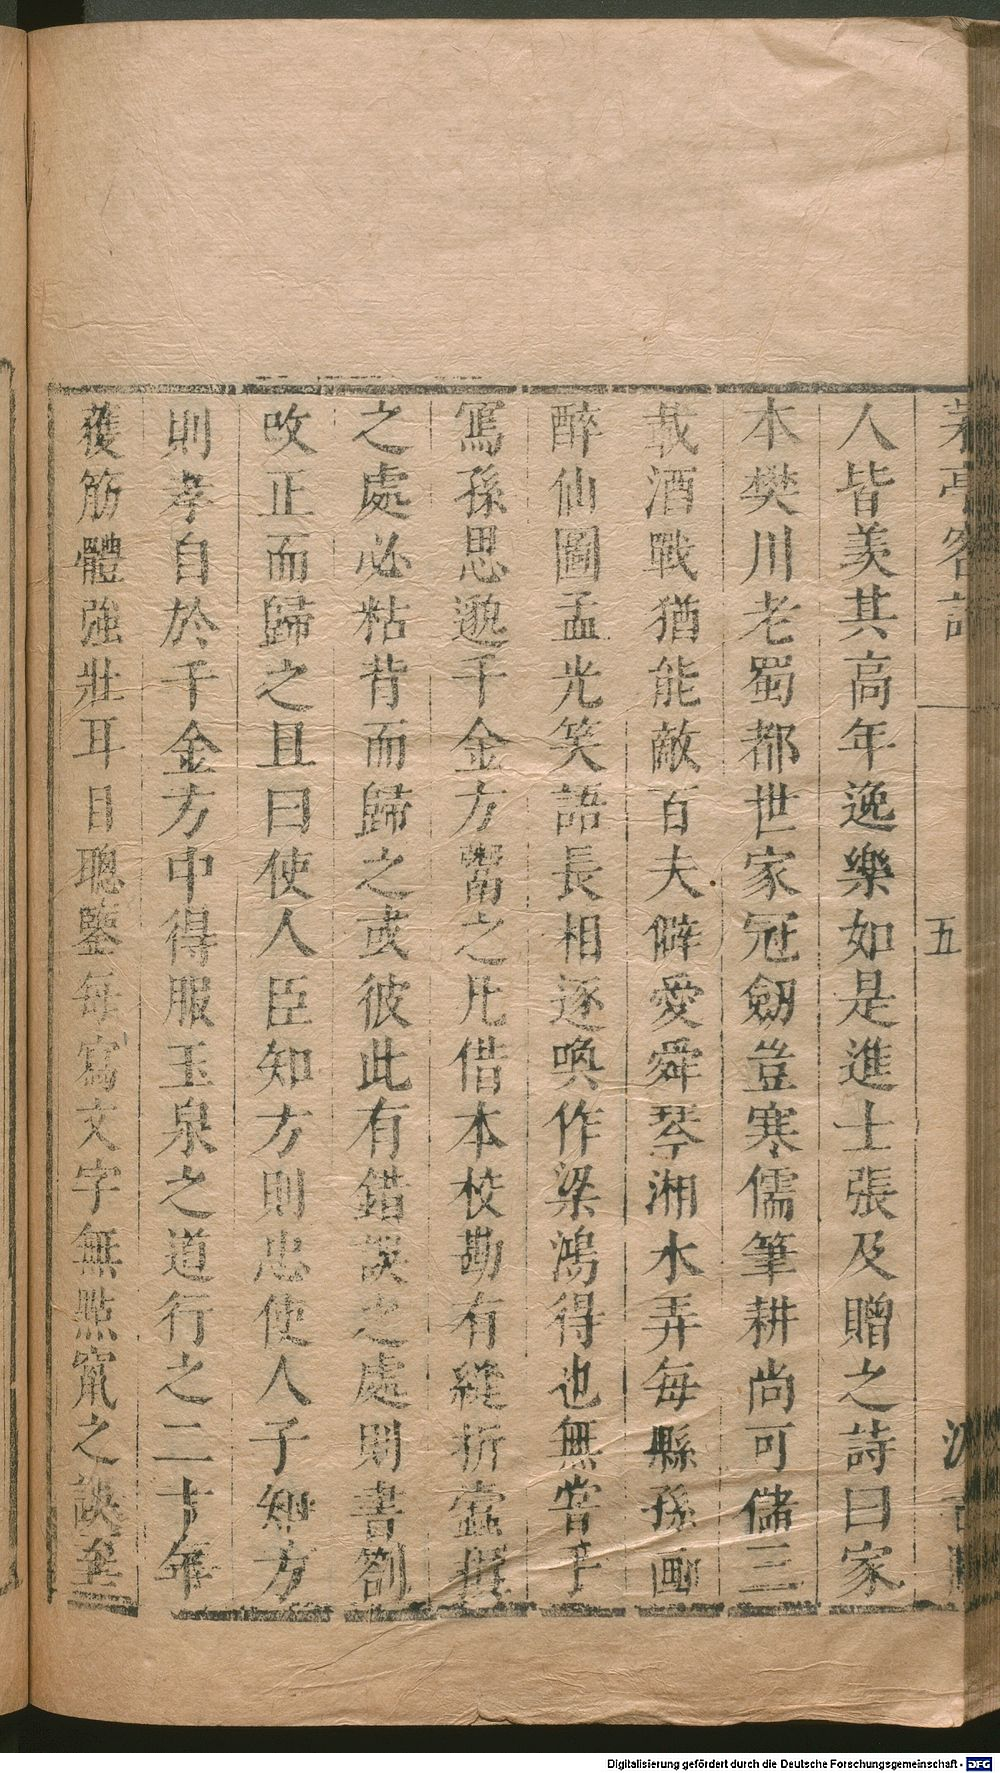 茅亭客話
五
人皆羡其高年逸樂如是進士張及贈之詩曰家
本樊川老蜀都世家冠劒豈寒儒筆耕尚可儲三
載酒戰猶能敵百夫僻愛舜琴湘水弄每縣孫画
醉仙圖孟光笑語長相逐喚作梁鴻得也無嘗手
寫孫思邈千金方鬻之凡借本校勘有縫折蠧損
之處必粘背而歸之或彼此有錯誤之處則書劄
改正而歸之且曰使人臣知方則忠使人子知方
則孝自於千金方中得服玉泉之道行之二十年
獲筋體強壯耳目聰鑒每寫文字無點竄之誤至
Digitalisierung gefördert durch die Deutsche Forschungsgemeinschaft - DFG